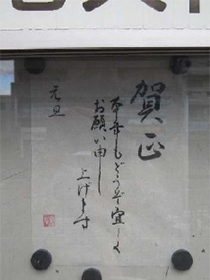 賀正
本年もどうぞ宜しく
お願い申し
上げます
元旦